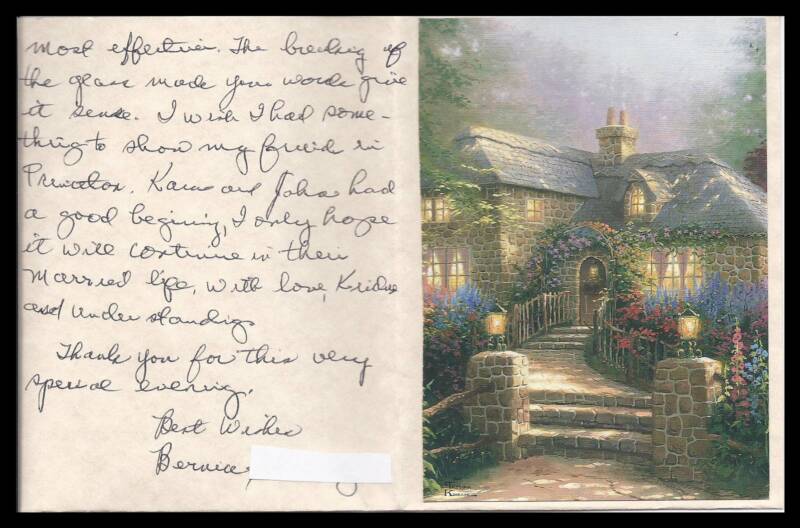 most effective. The breaking of
the glass made your words give
it sense. I wish I had some-
thing to show my friend in
Princeton. Karen and John had
a good begining, I only hope
it will continue in their
married life, with love,
and understanding.
Thank you for this very
special evening.
Best Wishes
Bernice